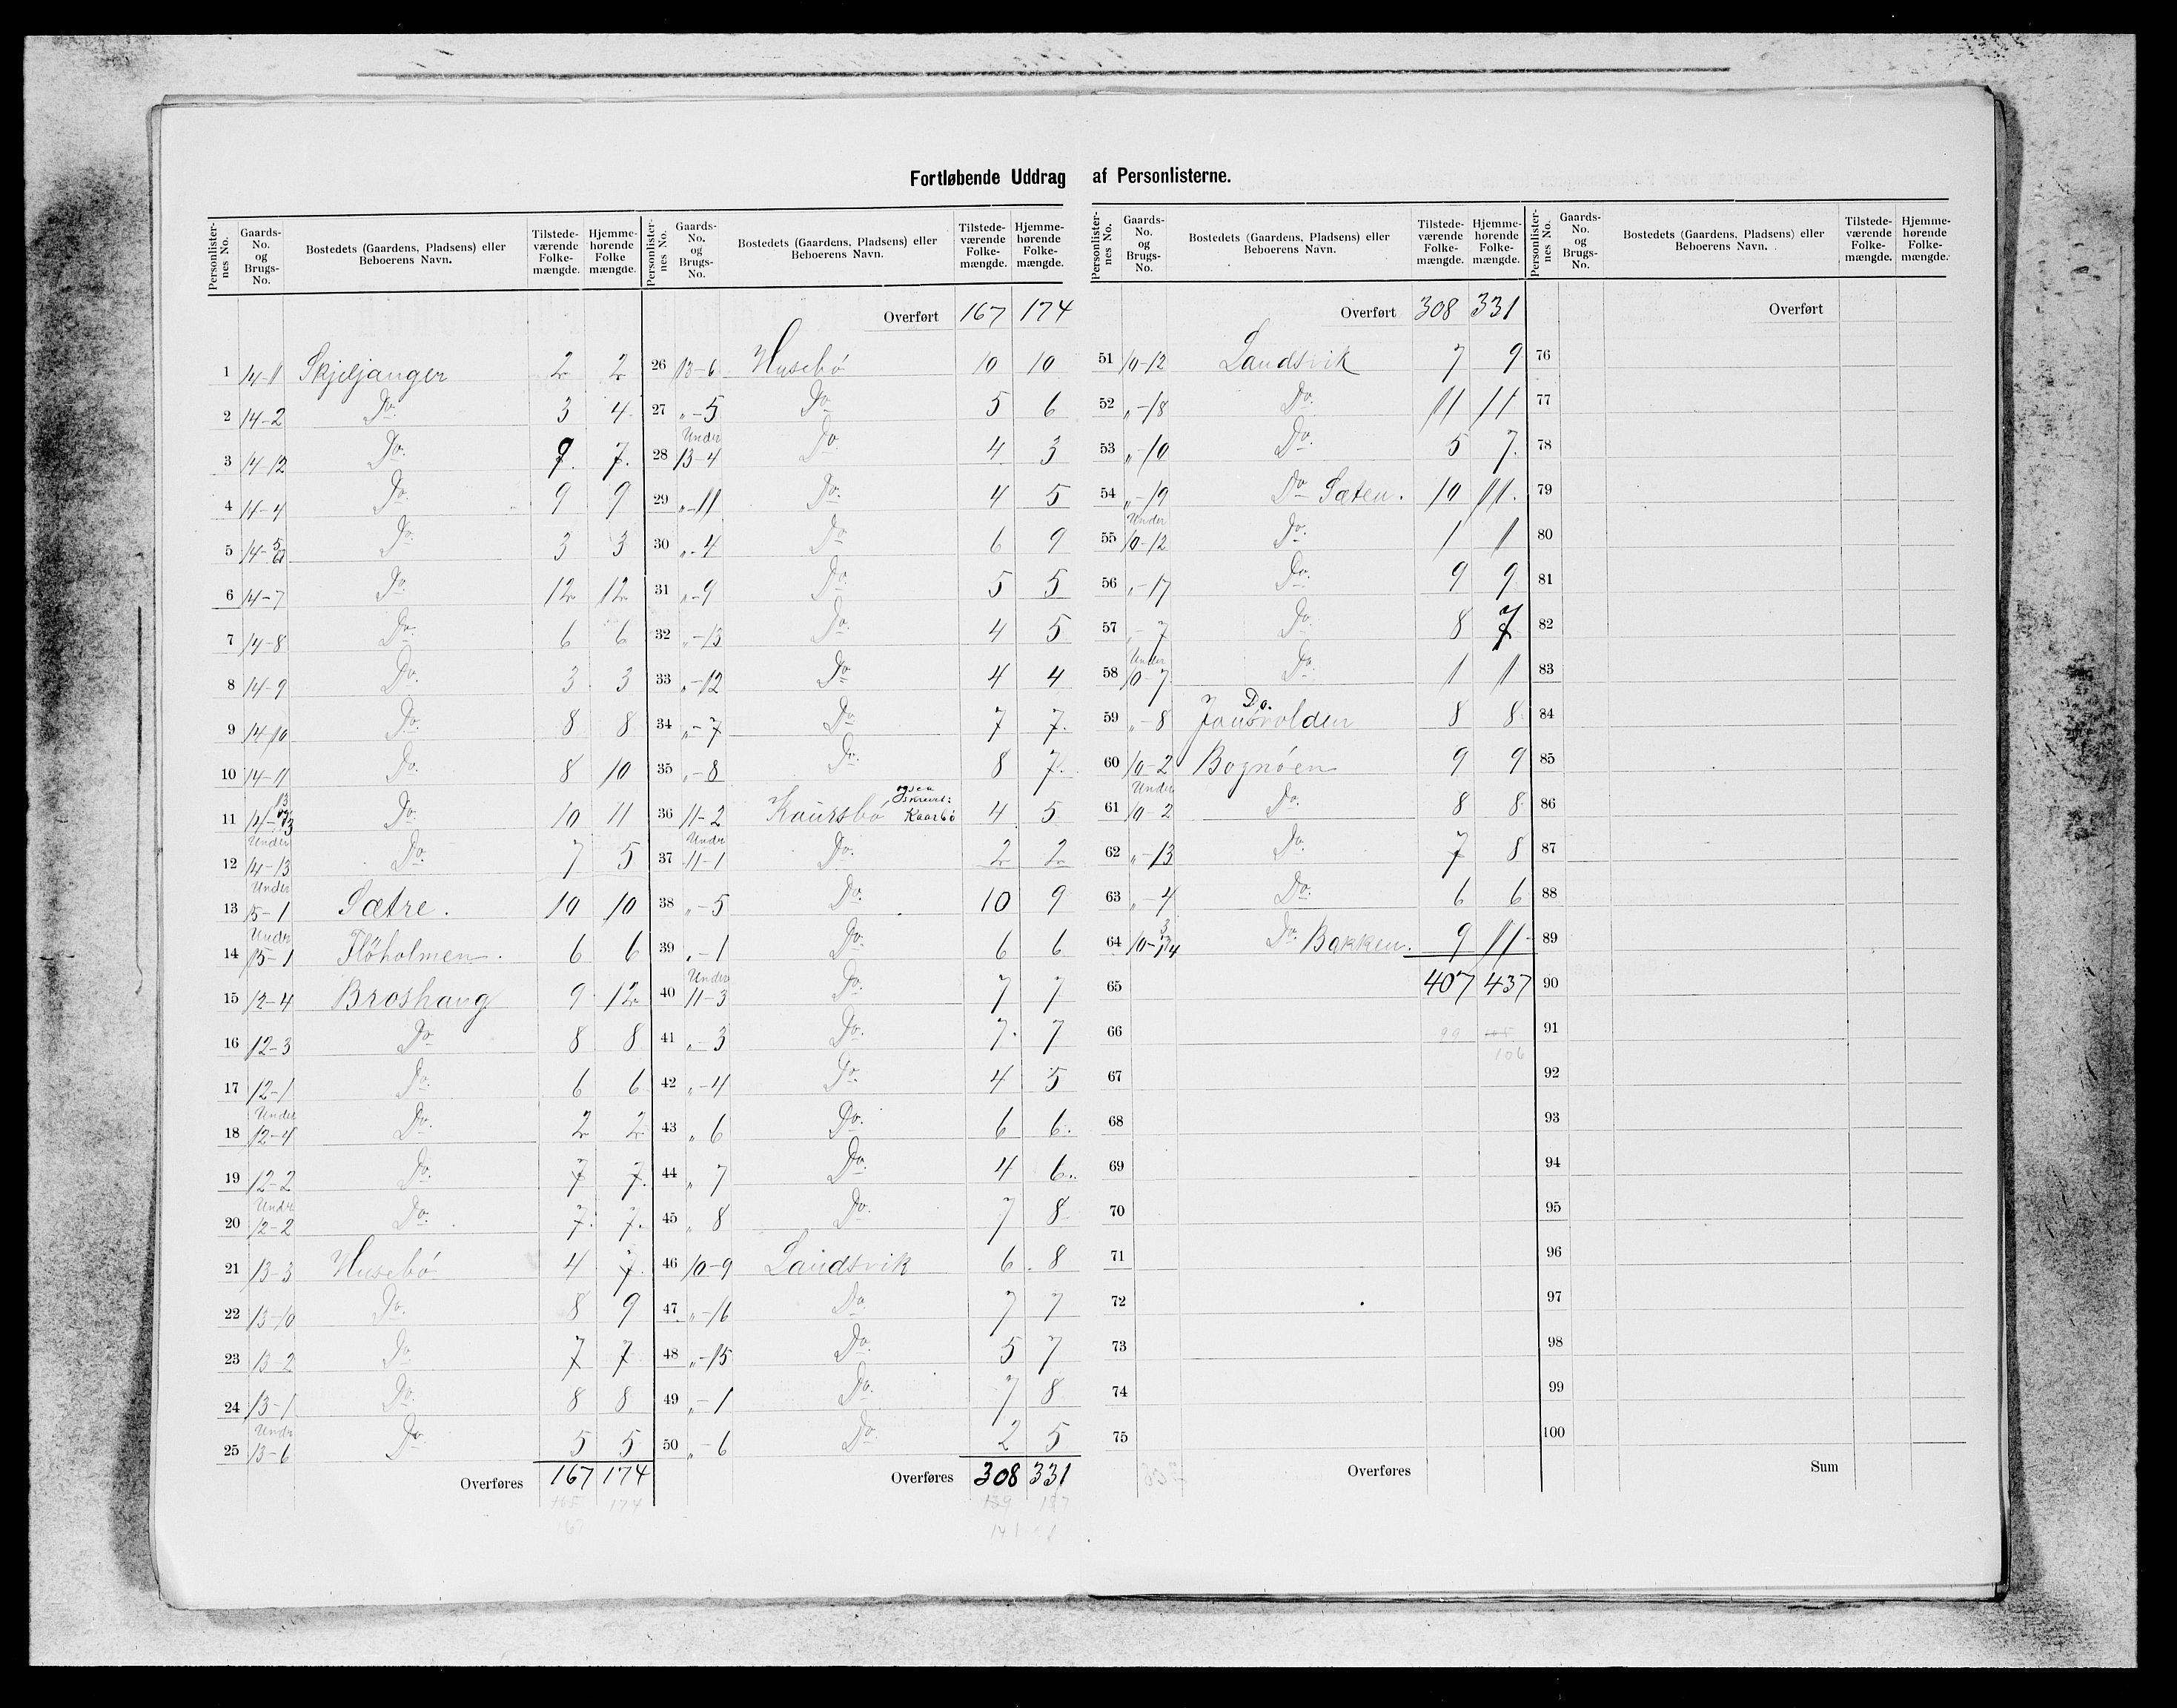 Fortløbende Uddrag af Personlisterne.
Personlisternes No. Gaards-No. og Brugs-No. Bostedets (Gaardens, Pladsens) eller Beboerens Navn. Tilstedeværende Folkemængde. Hjemmehørende Folkemængde.
1 14-1 Skjeljanger 2 2
2 14-2 Do. 3 4
3 14-12 Do. 9. 7.
4 14-4 Do. 9 9
5 14-5/6 Do. 3 3
6 14-7 Do. 12 12
7 14-8 Do. 6 6
8 14-9 Do. 3 3
9 14-10 Do. 8 8
10 14-11 Do. 8 10
11 14-13 Do. 10 11
12 Under 14-13 Do. 7 5
13 Under 15-1 Sætre. 10 10
14 Under 15-1 Flöholmen. 6 6
15 12-4 Broshaug 9 12
16 12-3 Do. 8 8
17 12-1 Do. 6 6
18 Under 12-4 Do. 2 2
19 12-2 Do. 7 7.
20 Under 12-2 Do. 7. 7.
21 13-3 Husebö 4 7.
22 13-10 Do. 8 9
23 13-2 Do. 7 7
24 13-1 Do. 8 8
25 Under 13-6 Do. 5 5
Overføres 167 174
165 174
167
Overført 167 174
26 13-6 Husebö 10 10
27 „-5 Do. 5 6
28 Under 13-4 Do. 4 3
29 „-11 Do. 4 5
30 „-4 Do. 6 9
31 „-9 Do. 5 5
32 „-13 Do. 4 5
33 „-12 Do. 4 4
34 „-7 Do. 7 7.
35 „-8 Do. 8 7.
36 11-2 Kaursbö ogsaa skrevet: Kaarbö 4 5
37 Under 11-1 Do. 2 2
38 „-5 Do. 10 9
39 „-1 Do. 6 6
40 Under 11-3 Do. 7 7
41 „-3 Do. 7. 7
42 „-4 Do. 4 5
43 „ 6 Do. 6 6.
44 „ 7 Do. 4 6.
45 „ 8 Do. 7 8
46 10-9 Landsvik 6. 8
47 „-16 Do. 7 7
48 „-15 Do. 5 7
49 „-1 Do. 7 8
50 „-6 Do. 2 5
Overføres 308 331
139 157
141
Overført 308 331
51 10-12 Landsvik 7 9
52 „-18 Do. 11 11
53 „-10 Do. 5 7.
54 „-19 Do. Sæten. 10 11.
55 Under 10-12 Do. 1 1
56 „-17 Do. 9 9
57 „-7 Do. 8 7
58 Under 10-7 Do. 1 1
59 „-8 Do. Jonsvolden 8 8
60 10-2 Bognöen 9 9
61 Under 10-2 Do. 8 8
62 „-13 Do. 7 8
63 „-4 Do. 6 6
64 10-3/14 Do. Bakken. 9 11
65 407 437
66 99 105
106
67
68
69
70
71
72
73
74
75
Overføres
Overført
76
77
78
79
80
81
82
83
84
85
86
87
88
89
90
91
92
93
94
95
96
97
98
99
100
Sum